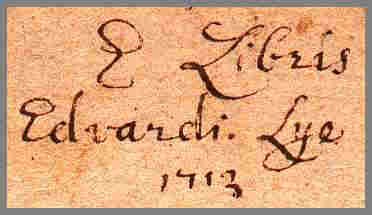 E Libris
Edvardi. Lye
1713